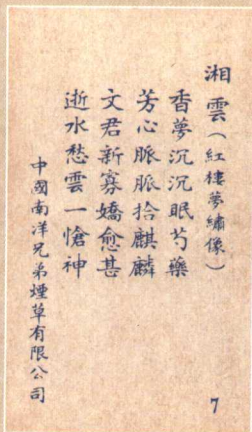 湘雲（紅樓夢繡像）
香夢沉沉眠芍藥
芳心脈脈拾麒麟
文君新寡嬌愈甚
逝水愁雲一愴神
中國南洋兄弟煙草有限公司
7